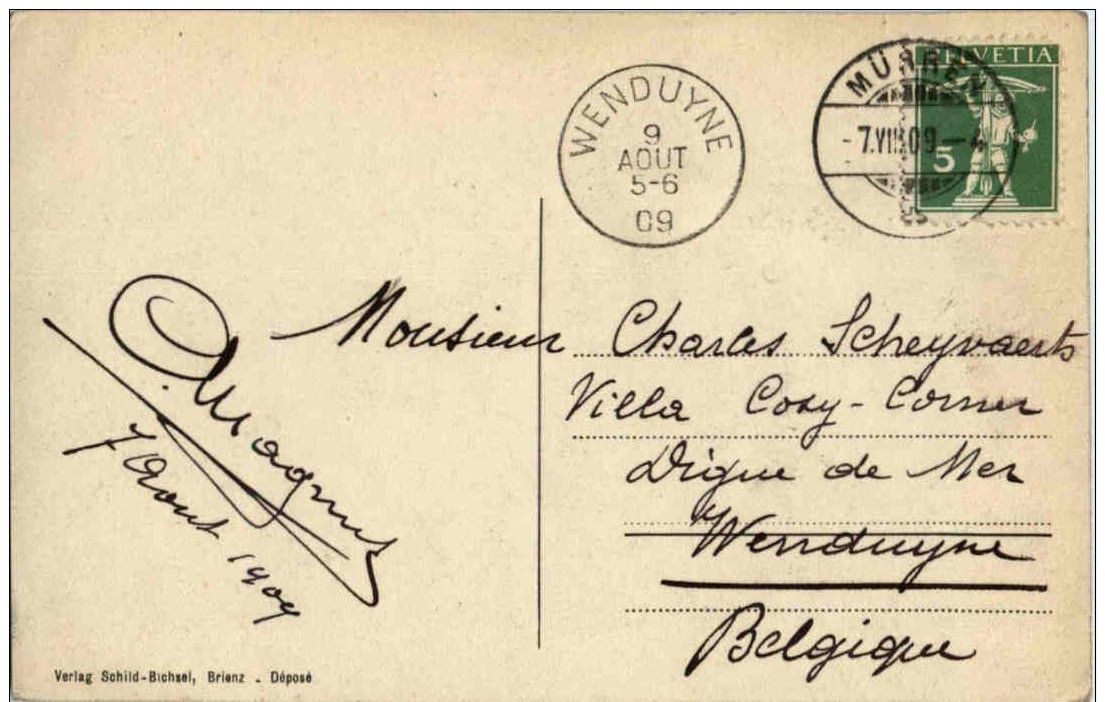 WENDUYNE
9
AOUT
5-6
09
MÜRREN
-7.VIII.09.-4
HELVETIA
5
Magnus
7 Aout 1909
Monsieur Charles Scheyvaerts
Villa Cosy-Corner
Digue de Mer
Wenduyne
Belgique
Verlag Schild-Bichsel, Brienz - Déposé